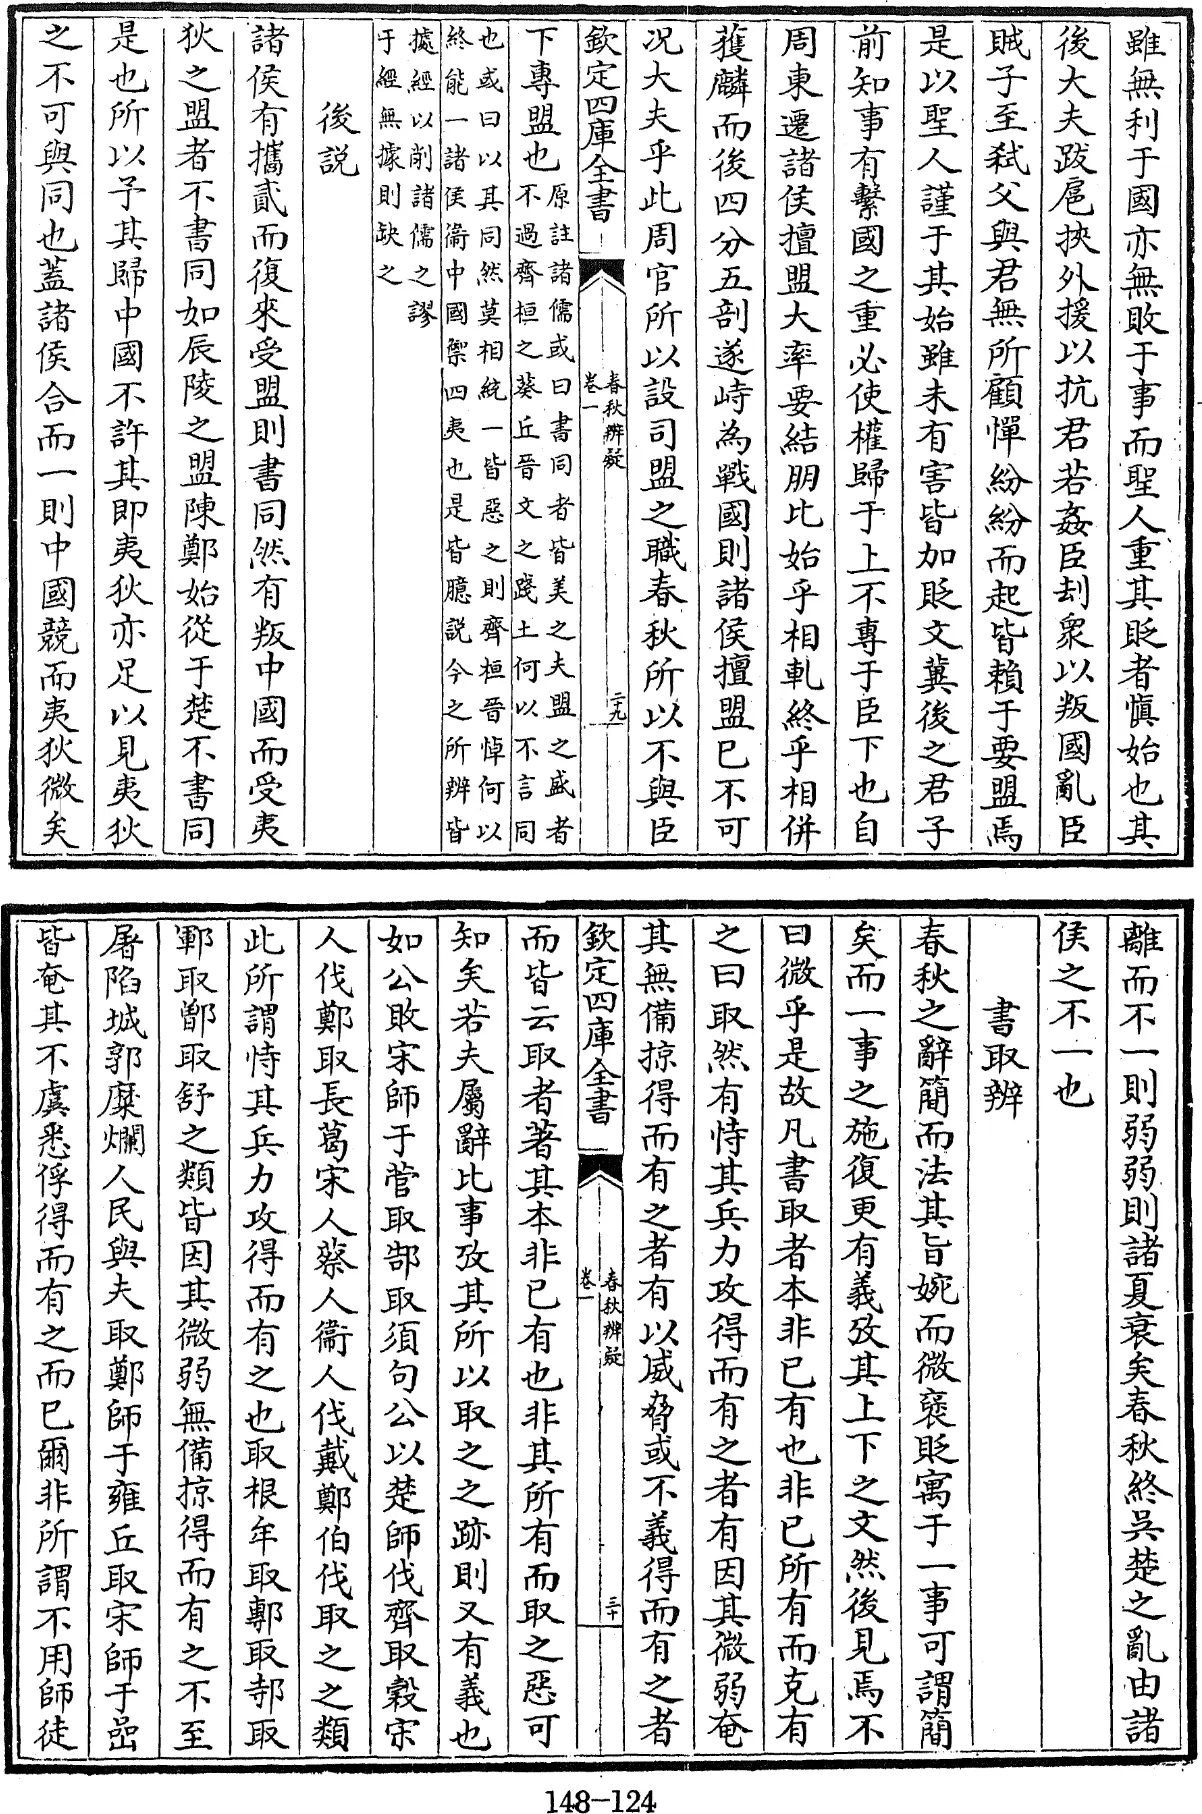 雖無利于國亦無敗于事而聖人重其貶者慎始也其
後大夫跋扈挾外援以抗君若姦臣刦衆以叛國亂臣
賊子至弑父與君無所顧憚紛紛而起皆賴于要盟焉
是以聖人謹于其始雖未有害皆加貶文冀後之君子
前知事有繫國之重必使權歸于上不專于臣下也自
周東遷諸侯擅盟大率要結朋比始乎相軋終乎相併
獲麟而後四分五剖遂峙為戰國則諸侯擅盟已不可
况大夫乎此周官所以設司盟之職春秋所以不與臣
欽定四庫全書
春秋辨疑
卷一
二十九
下專盟也原註諸儒或曰書同者皆美之夫盟之盛者
不過齊桓之葵丘晉文之踐土何以不言同
也或曰以其同然莫相統一皆惡之則齊桓晉悼何以
終能一諸侯衞中國禦四夷也是皆臆説今之所辨皆
據經以削諸儒之謬
于經無據則缺之
後説
諸侯有攜貳而復來受盟則書同然有叛中國而受夷
狄之盟者不書同如辰陵之盟陳鄭始從于楚不書同
是也所以予其歸中國不許其即夷狄亦足以見夷狄
之不可與同也蓋諸侯合而一則中國競而夷狄微矣
離而不一則弱弱則諸夏衰矣春秋終吳楚之亂由諸
侯之不一也
書取辨
春秋之辭簡而法其旨婉而微褒貶寓于一事可謂簡
矣而一事之施復更有義攷其上下之文然後見焉不
曰微乎是故凡書取者本非已有也非已所有而克有
之曰取然有恃其兵力攻得而有之者有因其微弱奄
其無備掠得而有之者有以威脅或不義得而有之者
欽定四庫全書
春秋辨疑
卷一
三十
而皆云取者著其本非已有也非其所有而取之惡可
知矣若夫屬辭比事攷其所以取之之跡則又有義也
如公敗宋師于菅取郜取須句公以楚師伐齊取穀宋
人伐鄭取長葛宋人蔡人衞人伐戴鄭伯伐取之之類
此所謂恃其兵力攻得而有之也取根牟取鄟取邿取
鄆取鄫取舒之類皆因其微弱無備掠得而有之不至
屠陷城郭糜爛人民與夫取鄭師于雍丘取宋師于嵒
皆奄其不虞悉俘得而有之而已爾非所謂不用師徒
148-124